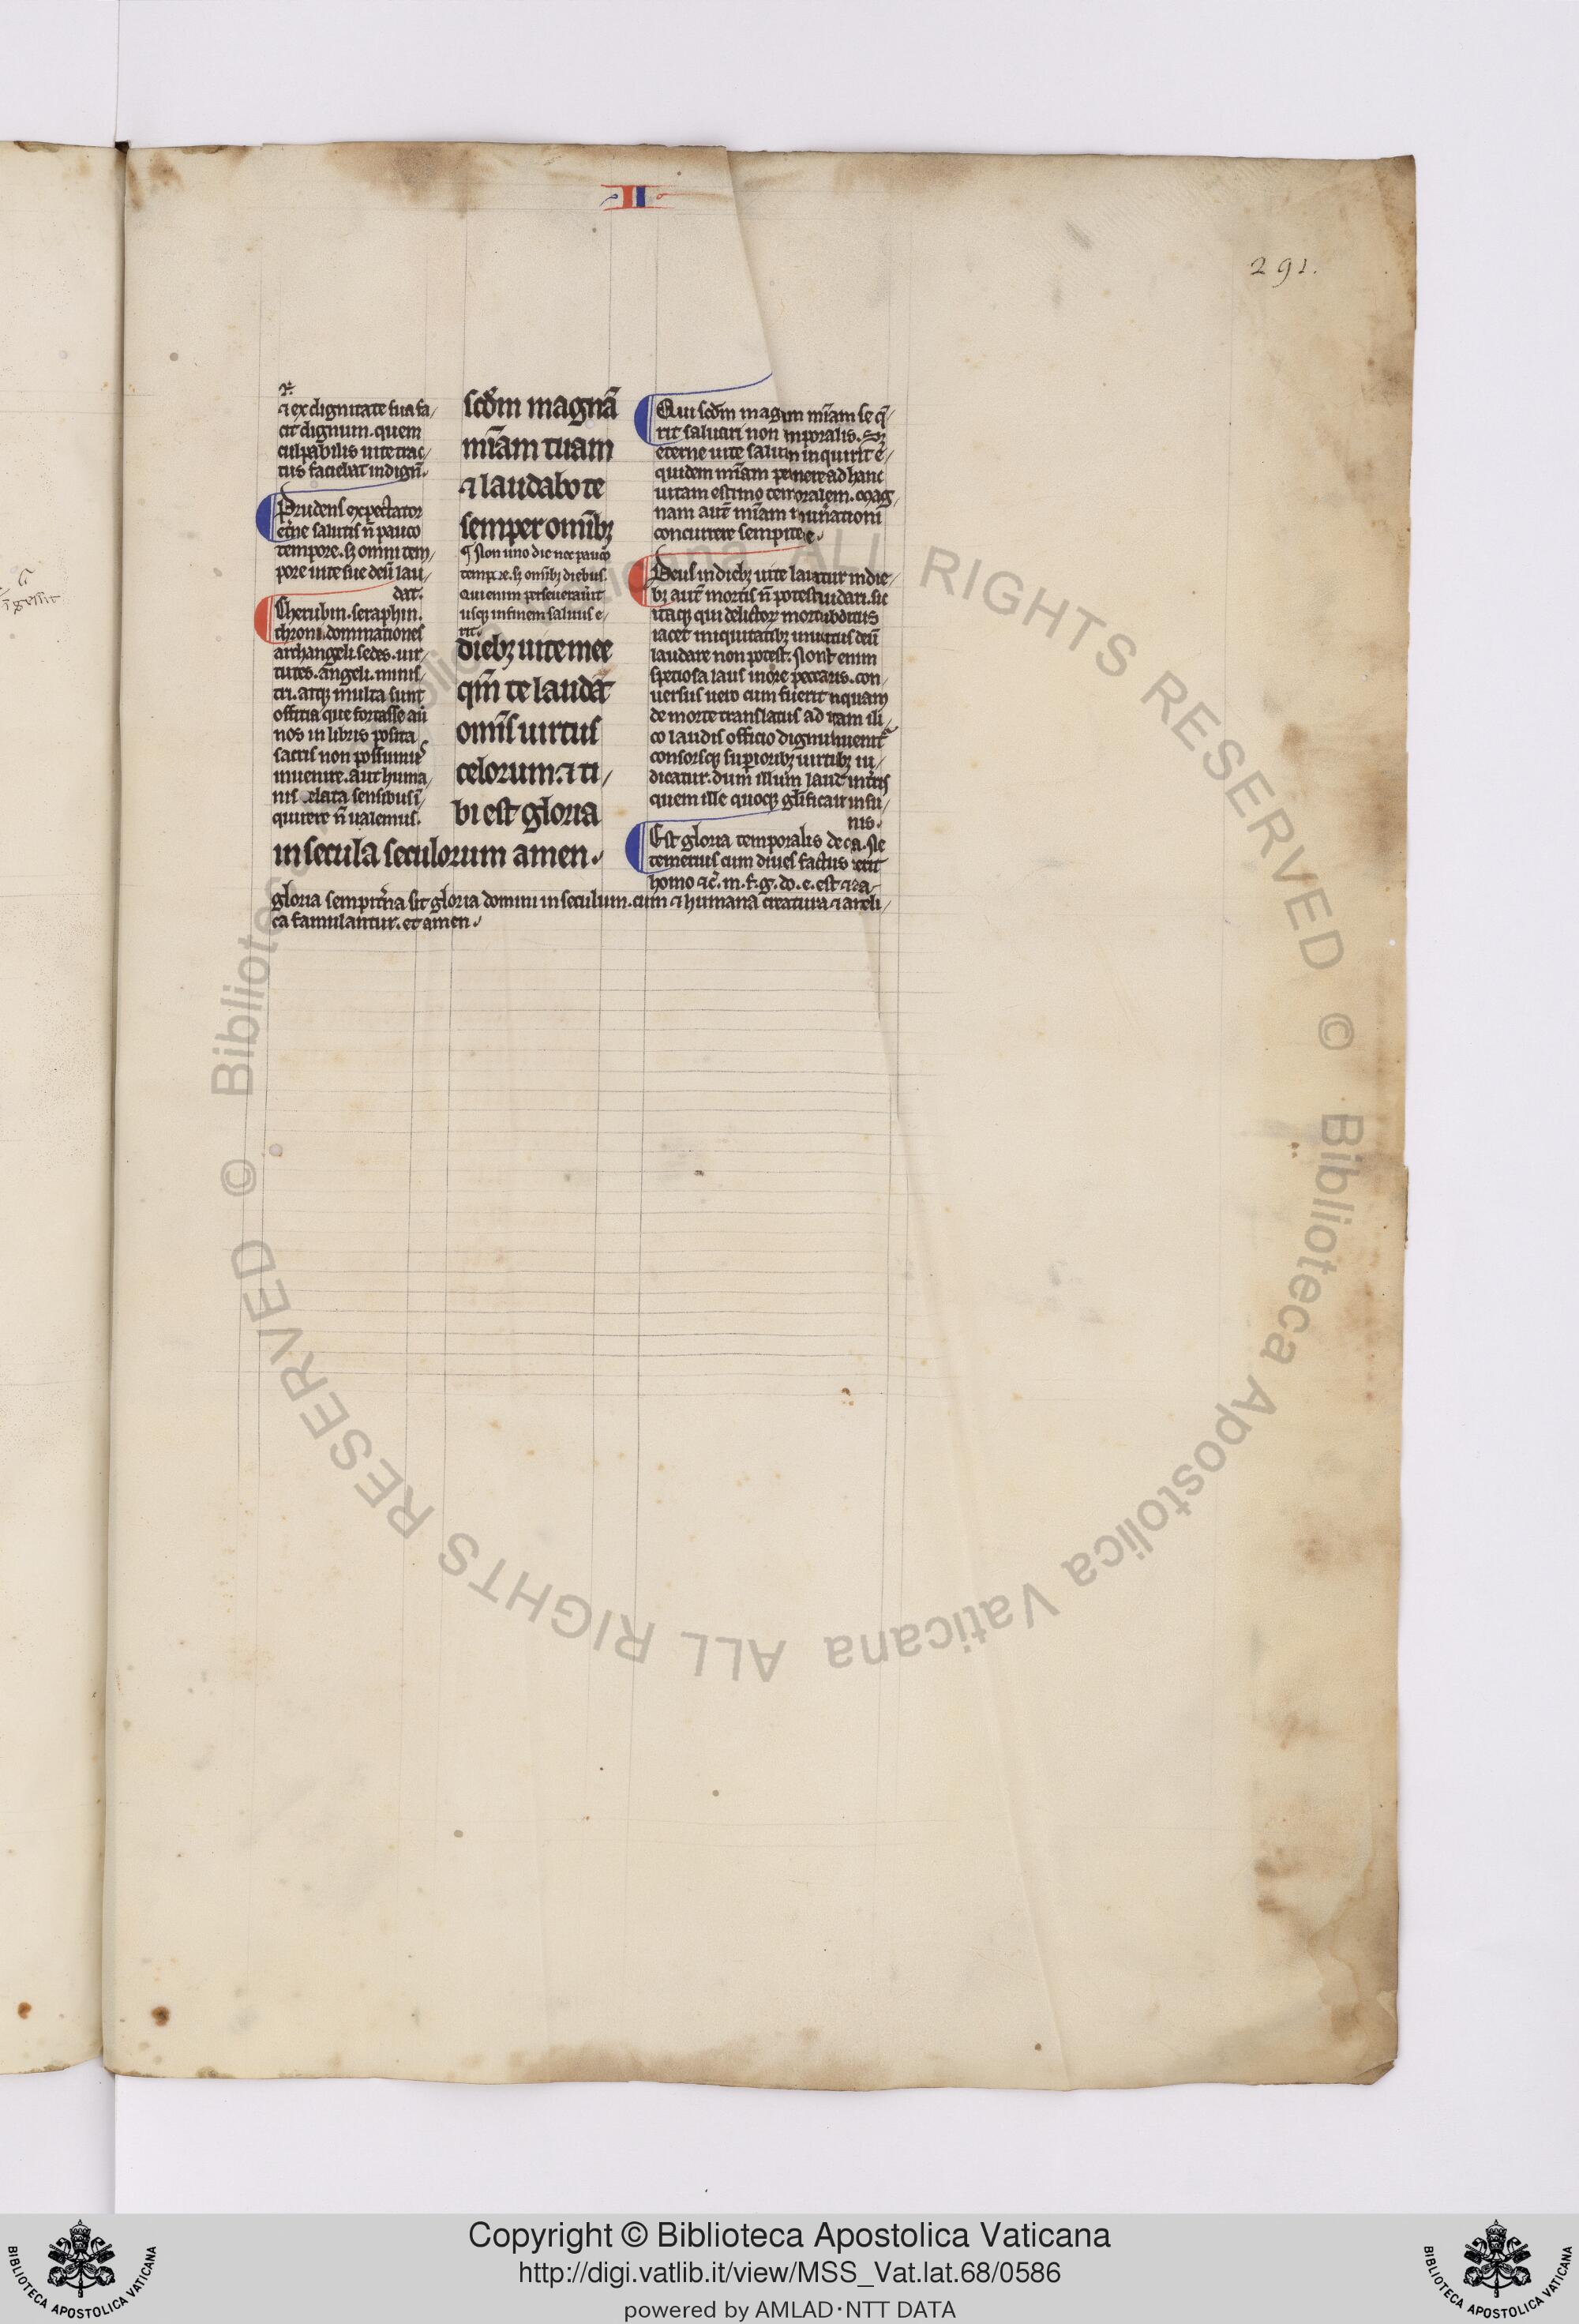 II
291.
⁊ ex dignitate sua fa/
cit dignum. quem
culpabilis uite trac/
tus faciebat indignū.
Prudens expectator
et̓ne salutis n̄ pauco
tempore. sꝫ omni tem/
pore uite sue deū lau/
dat.
Cherubin. seraphin.
throni. dominationes
archangeli. sedes. uir/
tutes. angeli. minis/
tri. atqꝫ multa sunt
officia que fortasse aū
nos in libris posita
sacris non possumus
inuenire. aut huma/
nis elata sensibus ī/
quirere n̄ ualemus.
scd̄m magnā
mīam tuam
⁊ laudabo te
semper om̄ibꝫ
¶ Non uno die nec pauco
tempore. sꝫ om̄ibꝫ diebus.
Qui enim perseuerauerit
usqꝫ in finem saluus e/
rit.
diebꝫ uite mee
qm̄ te laudat
om̄is uirtus
celorum. ⁊ ti/
bi est gloria
in secula seculorum amen.
Qui scd̄m mag mīam se q̄/
rit saluari non mporalis. sꝫ
eterne uite salut inquirit
quidem mīam nere ad hanc
uitam estimo oralem. Mag/
nam aut̄ mīam
concurrere sempit
Deus in diebꝫ uite tur in die/
bꝫ aut̄ mortis n̄ potest udari. sic
itaqꝫ qui delictoꝝ morti bditus
iacet iniquitatibꝫ deū
laudare non potest. Non ē enim
speciosa laus in ore peccatoris. con/
uersus uero cum fuerit nquam
de morte translatus ad tam ili/
co laudis officio dignus inuenit
consorsqꝫ superioribꝫ uirtibꝫ iu/
dicatur. dum illum laudat
quem ille quoqꝫ gl̄ificat in su/
nis.
Est gloria temporalis de Ne
timueris cum diues factus erit
homo ⁊c̄. m. f. g. do. e. est ⁊
gloria sempit̓na sit gloria domini in seculum. cum ⁊ humana creatura ⁊ aneli/
ca famulantur. et amen.
Copyright © Biblioteca Apostolica Vaticana
http://digi.vatlib.it/view/MSS_Vat.lat.68/0586
powered by AMLAD·NTT DATA
BIBLIOTECA APOSTOLICA VATICANA
BIBLIOTECA APOSTOLICA VATICANA
© Biblioteca Apostolica Vaticana ALL RIGHTS RESERVED © Biblioteca Apostolica Vaticana ALL RIGHTS RESERVED